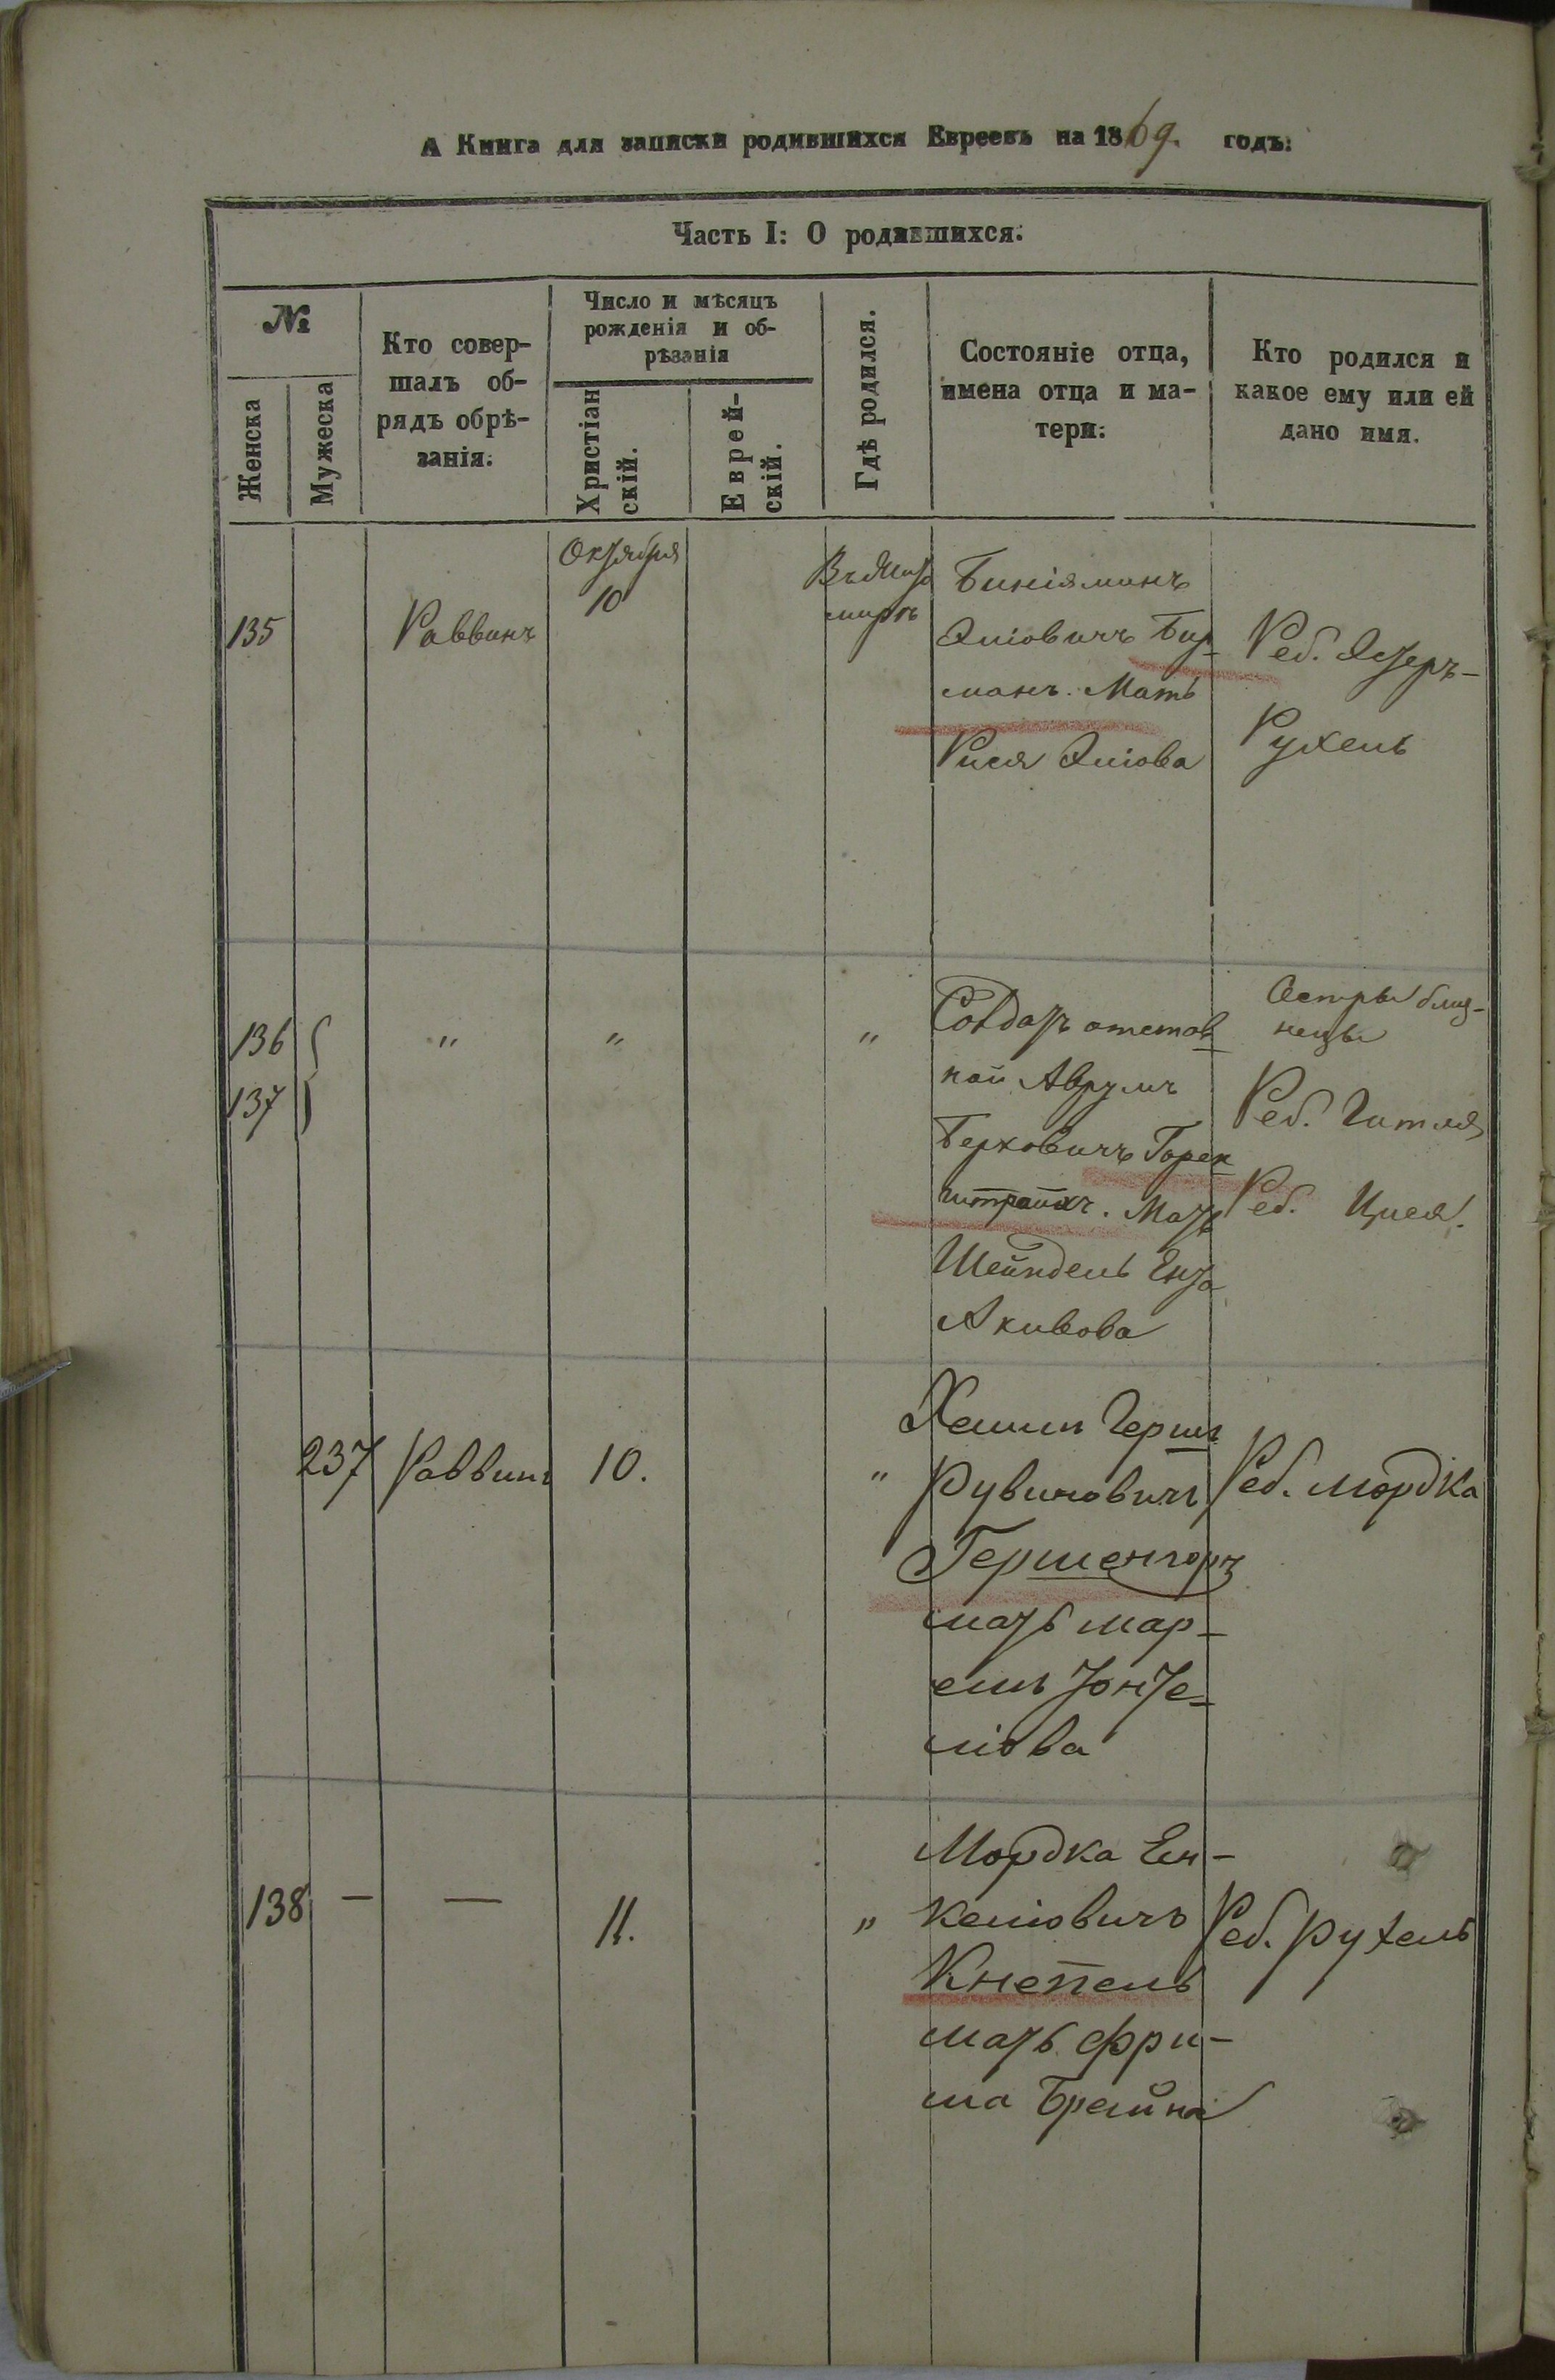 А Книга для записки родившихся Евреевъ на 1869. годъ:
Часть I: О родившихся.
№
Женска
Мужеска
Кто совер-
шалъ об-
рядъ обрѣ-
занія.
Число и мѣсяцъ
рожденія и об-
рѣзанія
Христіан
скій.
Еврей-
скій.
Гдѣ родился.
Состояніе отца,
имена отца и ма-
тери:
Кто родился и
какое ему или ей
дано имя.
135
Раввинъ
Октября
10
Въ Жито
мирѣ
Биніяминъ
Эліовичъ Бир-
манъ. Мать
Рися Эліова
Реб. Эстеръ-
Рухель
136
137
"
"
"
Солдатъ отстав
ной Аврумъ
Берковичъ Горен
штраихъ. Мать
Шейндель Ента
Акивова
Сестры близ-
нецы
Реб. Гитля
Реб. Цися.
237
Раввинъ
10.
"
Хаимъ Герш
Рувиновичъ
Гершенгорн
мать Мар-
Іонте-
ліова
Реб. Мордка
138
—
—
11.
"
Мордка Ен-
келіовичъ
Кнепель
мать Фри-
ма Брайна
Реб. Рухель